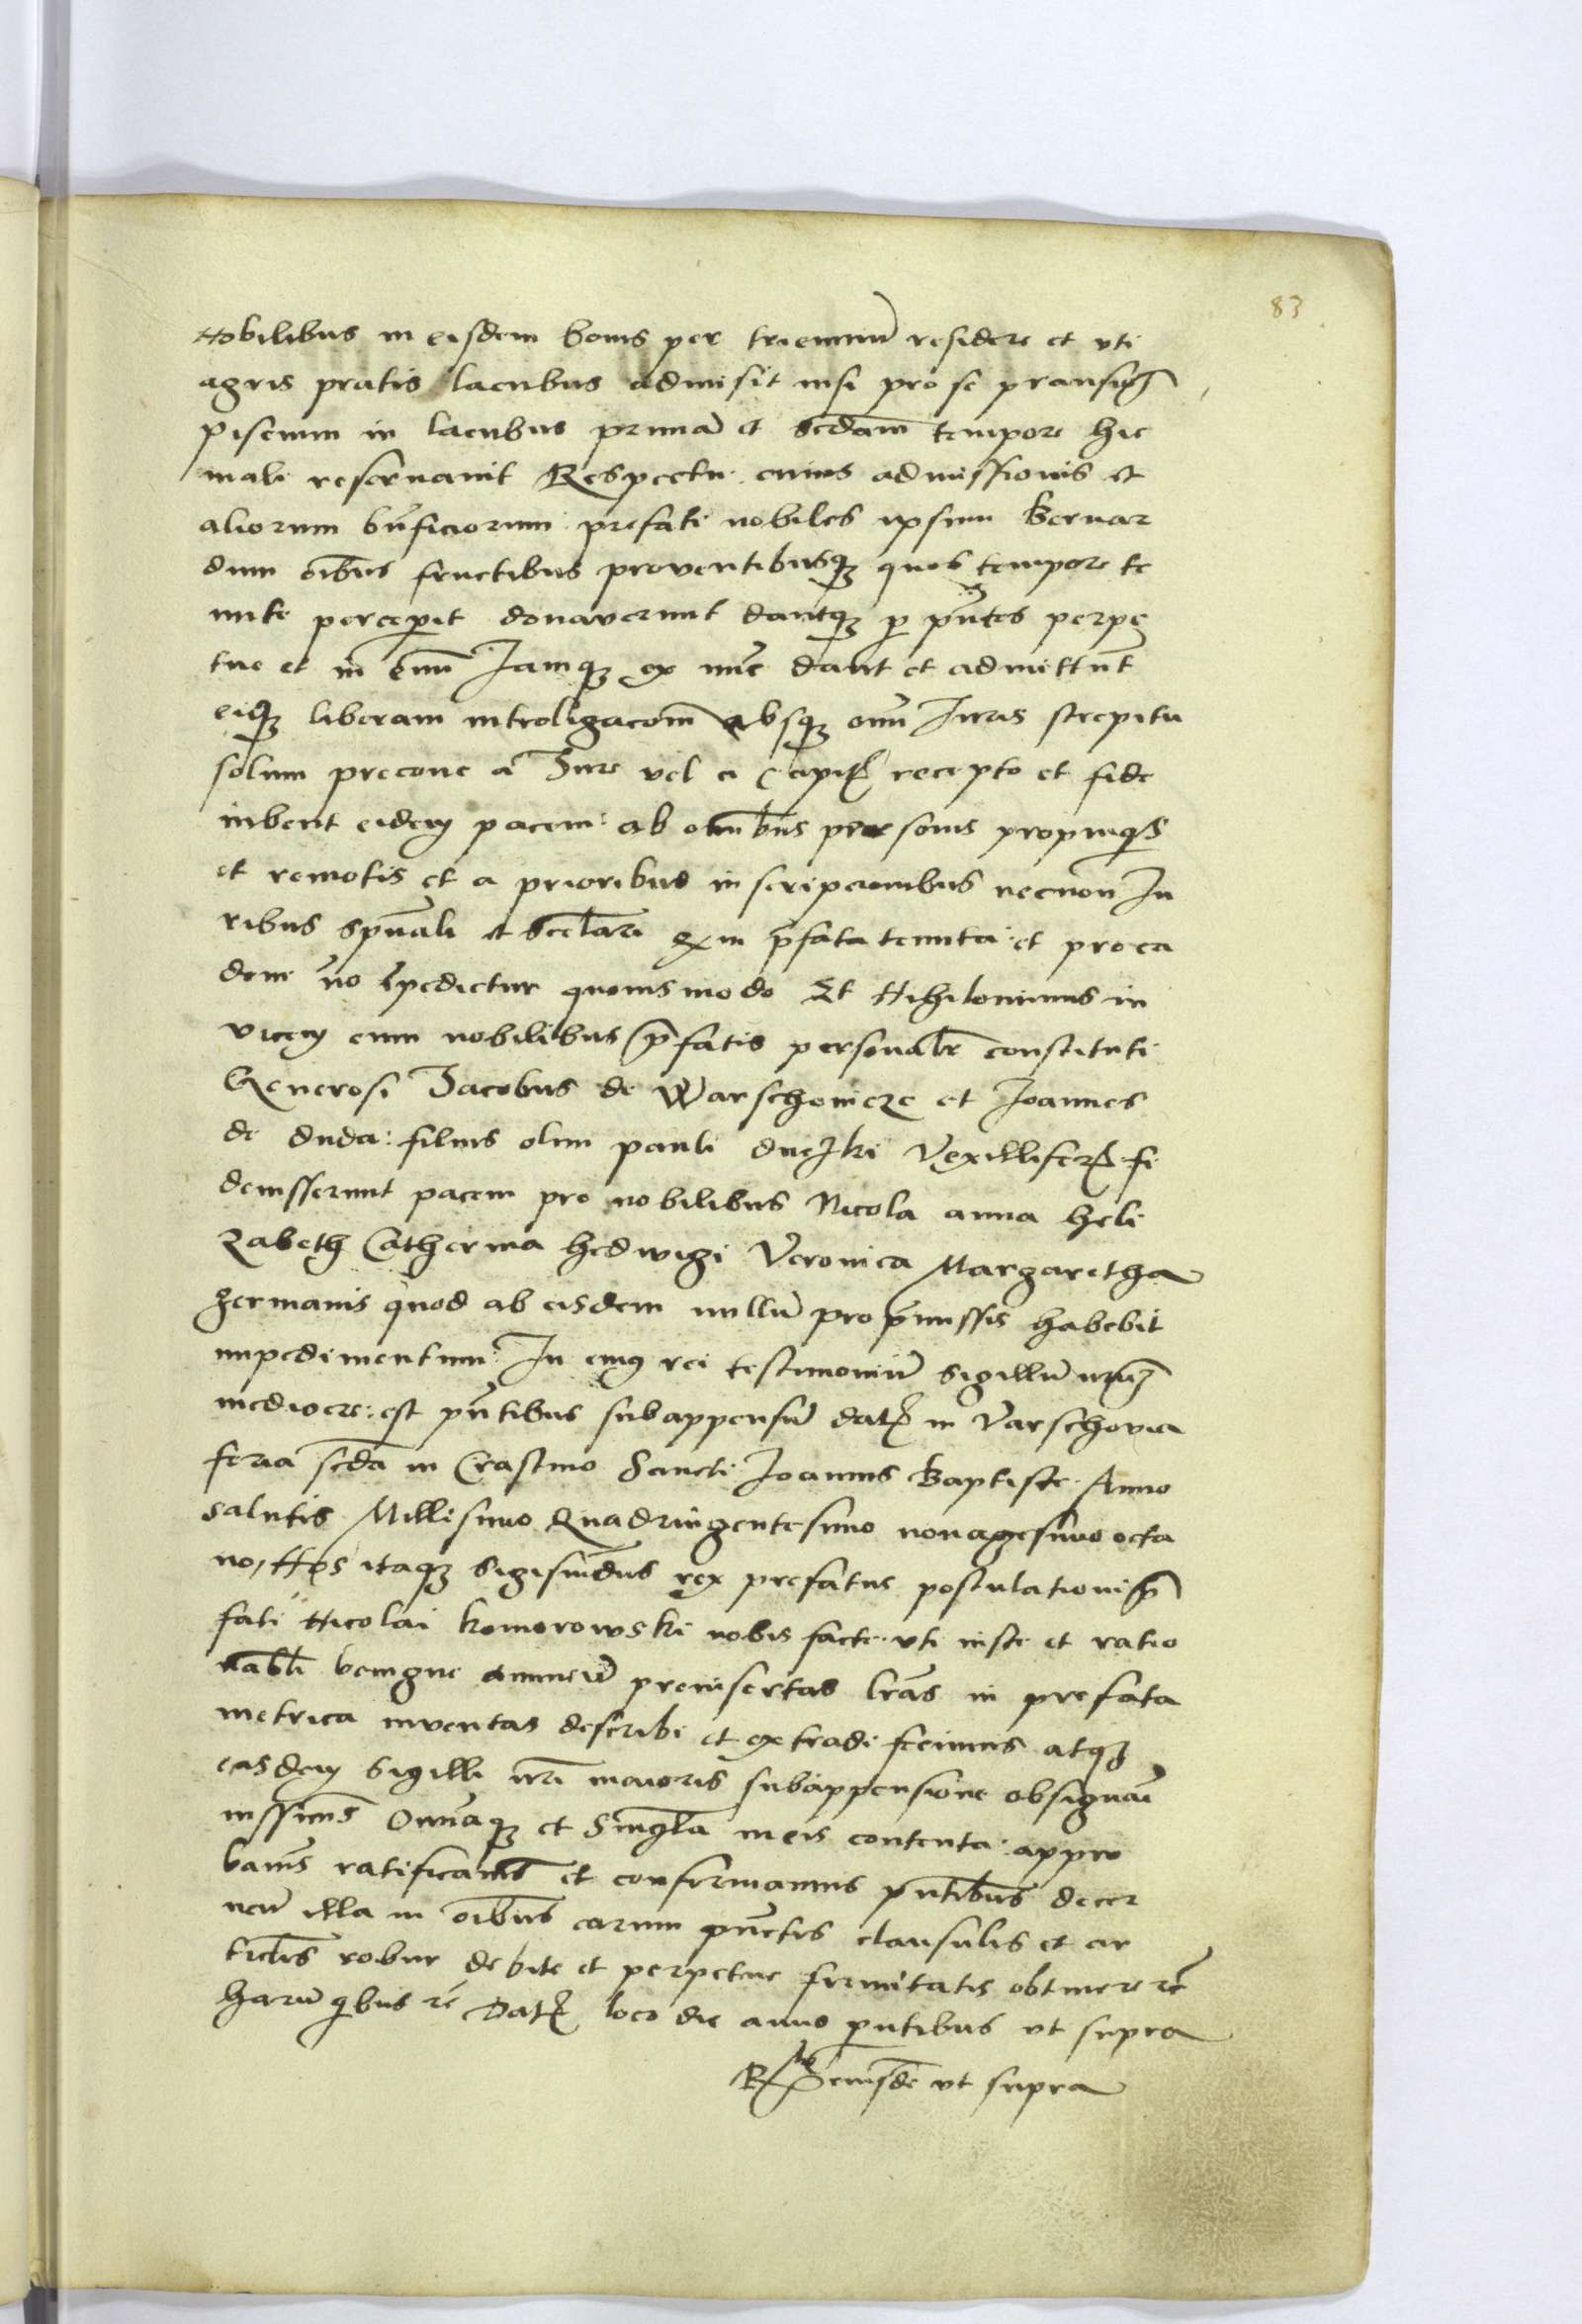 83
Nobilibus in eisdem bonis per trienniū residere et vti
agris pratis lacubus admisit nisi pro se
piscium in lacubus primā et scdam tempore hie
mali reseruauit Respectu cuius admissionis et
aliorum bn̄ficiorum prefati nobiles ipsum Bernar
dum oībus fructibus prouentibusqz quos tempore te
nute perceperit donauerunt dantqz p pn̄tes perpe
tue et in euū Iamqz ex nūc dant et admittūt
eidqz liberam introligacom̄ absqz omī Iuris strepitu
solum precone a Iure vel a Capit recepto et fide
iubent eidem pacem ab omībus personis propinqis
et remotis et a prioribus inscripcionibus necnon Iu
ribus spūali et sclari ex in p̄fata tenuta et pro ea
dem nō īpedietur quouismodo Et Nihilominus in
vicem cum nobilibus p̄fatis personalr constituti
Generosi Jacobus de Warschewicze et Joannes
de duda filius olim pauli duczki Vexilliferi fi
deiusserunt pacem pro nobilibus Nicola anna heli
zabeth Catherina hedwigi Veronica Margaretha
germanis quod ab eisdem nullū pro p̄missis habebit
impedimentum In cuius rei testimoniū sigillū nr̄um
mediocre est pn̄tibus subappensū dat in Varschovia
feria scda in Crastino Sancti Joannis Baptiste Anno
salutis Millesimo Quadringentesimo nonagesimo octa
uo, Nos itaqz Sigismūdus rex prefatus postulationi p̄
fati Nicolai komorowski nobis facte vti iuste et ratio
nabli benigne annuen̄ preinsertas lrās in prefata
metrica inventas describi et extradi fecimus atqz
easdem sigilli nrī maioris subappensione obsignari
iussims Omniaqz et Singla in eis contenta appro
bams ratificams et confirmamus pn̄tibus decer
nen̄ illa in oībus earum pūctis clausulis et ar
ticlis robur debite et perpetue firmitatis obtinere rē
harū qibus rē Dat loco die anno pn̄tibus vt supra
Rō eiusdē vt supra